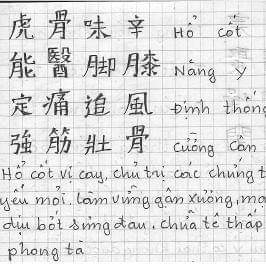 虎骨味辛 Hổ cốt
能醫脚膝 Năng y
定痛追風 Định thống
強筋壯骨 Cường cân
Hổ cốt vị cay, chủ trị các chứng t
yếu mỏi, làm vững gân xương, mạ
dịu bớt sưng đau, chữa tê thấp
phong tà